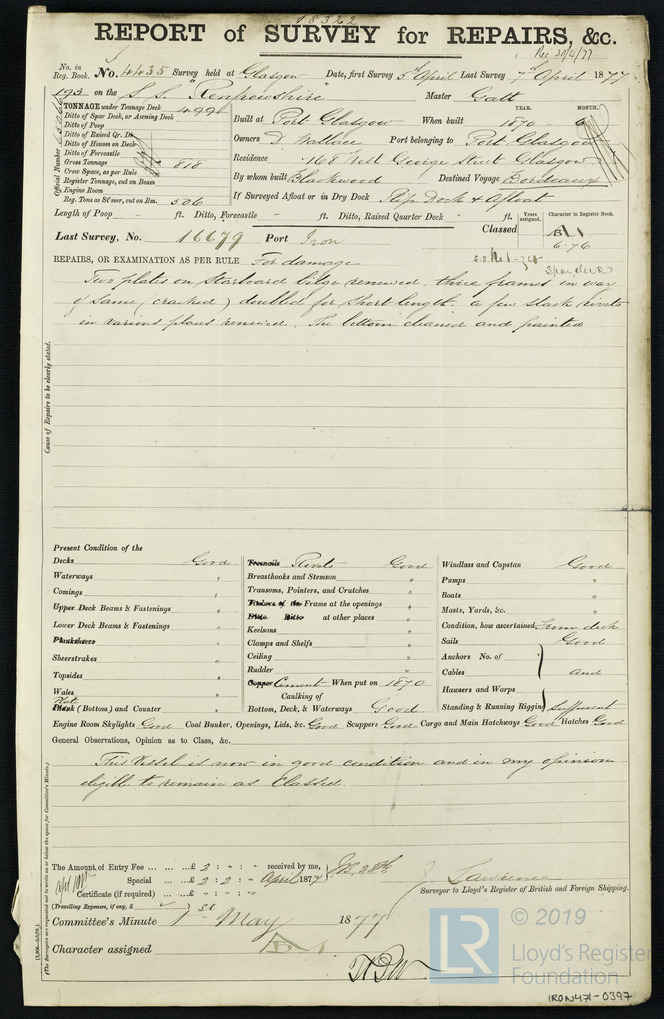 18322
REPORT of SURVEY for REPAIRS, &c.
Rec 30/4/77
No. in Reg. Book. No. 4435 Survey held at Glasgow Date, first Survey 5th April Last Survey 7th April 1877
193 on the S.S. "Renfrewshire" Master Galt
TONNAGE under Tonnage Deck 499
Ditto of Spar Deck, or Awning Deck
Ditto of Poop
Ditto of Raised Qr. Dk
Ditto of Houses on Deck
Ditto of Forecastle
Gross Tonnage 818
Crew Space, as per Rule
Register Tonnage, cut on Beam
Engine Room
Reg. Tons as St'mer, cut on Bm. 506
Official Number
YEAR. MONTH.
Built at Port Glasgow When built 1870 6
Owners D. Wallace Port belonging to Port Glasgow
Residence 168 West George Street Glasgow
By whom built Blackwood Destined Voyage Bordeaux
If Surveyed Afloat or in Dry Dock Slip Dock & Afloat
Length of Poop ft. Ditto, Forecastle ft. Ditto, Raised Quarter Deck ft.
Years assigned. Character in Register Book.
Classed A1
6.76
Last Survey, No. 16679 Port Iron
S.S. No 1-74
Spar deck
REPAIRS, OR EXAMINATION AS PER RULE For damage
Two plates on starboard bilge renewed. three frames in way
of same (cracked) doubled for short length. a few slack rivets
in various places renewed. The bottom cleaned and painted
Cause of Repairs to be clearly stated.
Present Condition of the
Decks Good
Waterways "
Comings "
Upper Deck Beams & Fastenings "
Lower Deck Beams & Fastenings "
Planksheers
Sheerstrakes "
Topsides "
Wales "
Plate
Plank (Bottom) and Counter "
Treenails Rivets Good
Breasthooks and Stemson "
Transoms, Pointers, and Crutches "
Timbers of the Frame at the openings "
Ditto Ditto at other places "
Keelsons "
Clamps and Shelfs "
Ceiling "
Rudder "
Copper Cement When put on 1870
Caulking of
Bottom, Deck, & Waterways Good
Windlass and Capstan Good
Pumps "
Boats "
Masts, Yards, &c. "
Condition, how ascertained From deck
Sails Good
Anchors No. of
Cables and
Hawsers and Warps
Standing & Running Rigging sufficient
Engine Room Skylights Good Coal Bunker, Openings, Lids, &c. Good Scuppers Good Cargo and Main Hatchways Good Hatches Good
General Observations, Opinion as to Class, &c.
This Vessel is now in good condition and in my opinion
eligible to remain as Classed.
The Amount of Entry Fee ... ... £ 2 : " : " received by me,
Special ... £ 2 : 2 : " April 1877
Certificate (if required) ... £ " : " : "
(Travelling Expenses, if any, £
Lawrence
Surveyor to Lloyd's Register of British and Foreign Shipping.
Committee's Minute 1 May 1877
Character assigned
(The Surveyors are requested not to write on or below the space for Committee's Minute.)
© 2019
LR
Lloyd's Register
Foundation
IRON471-0397